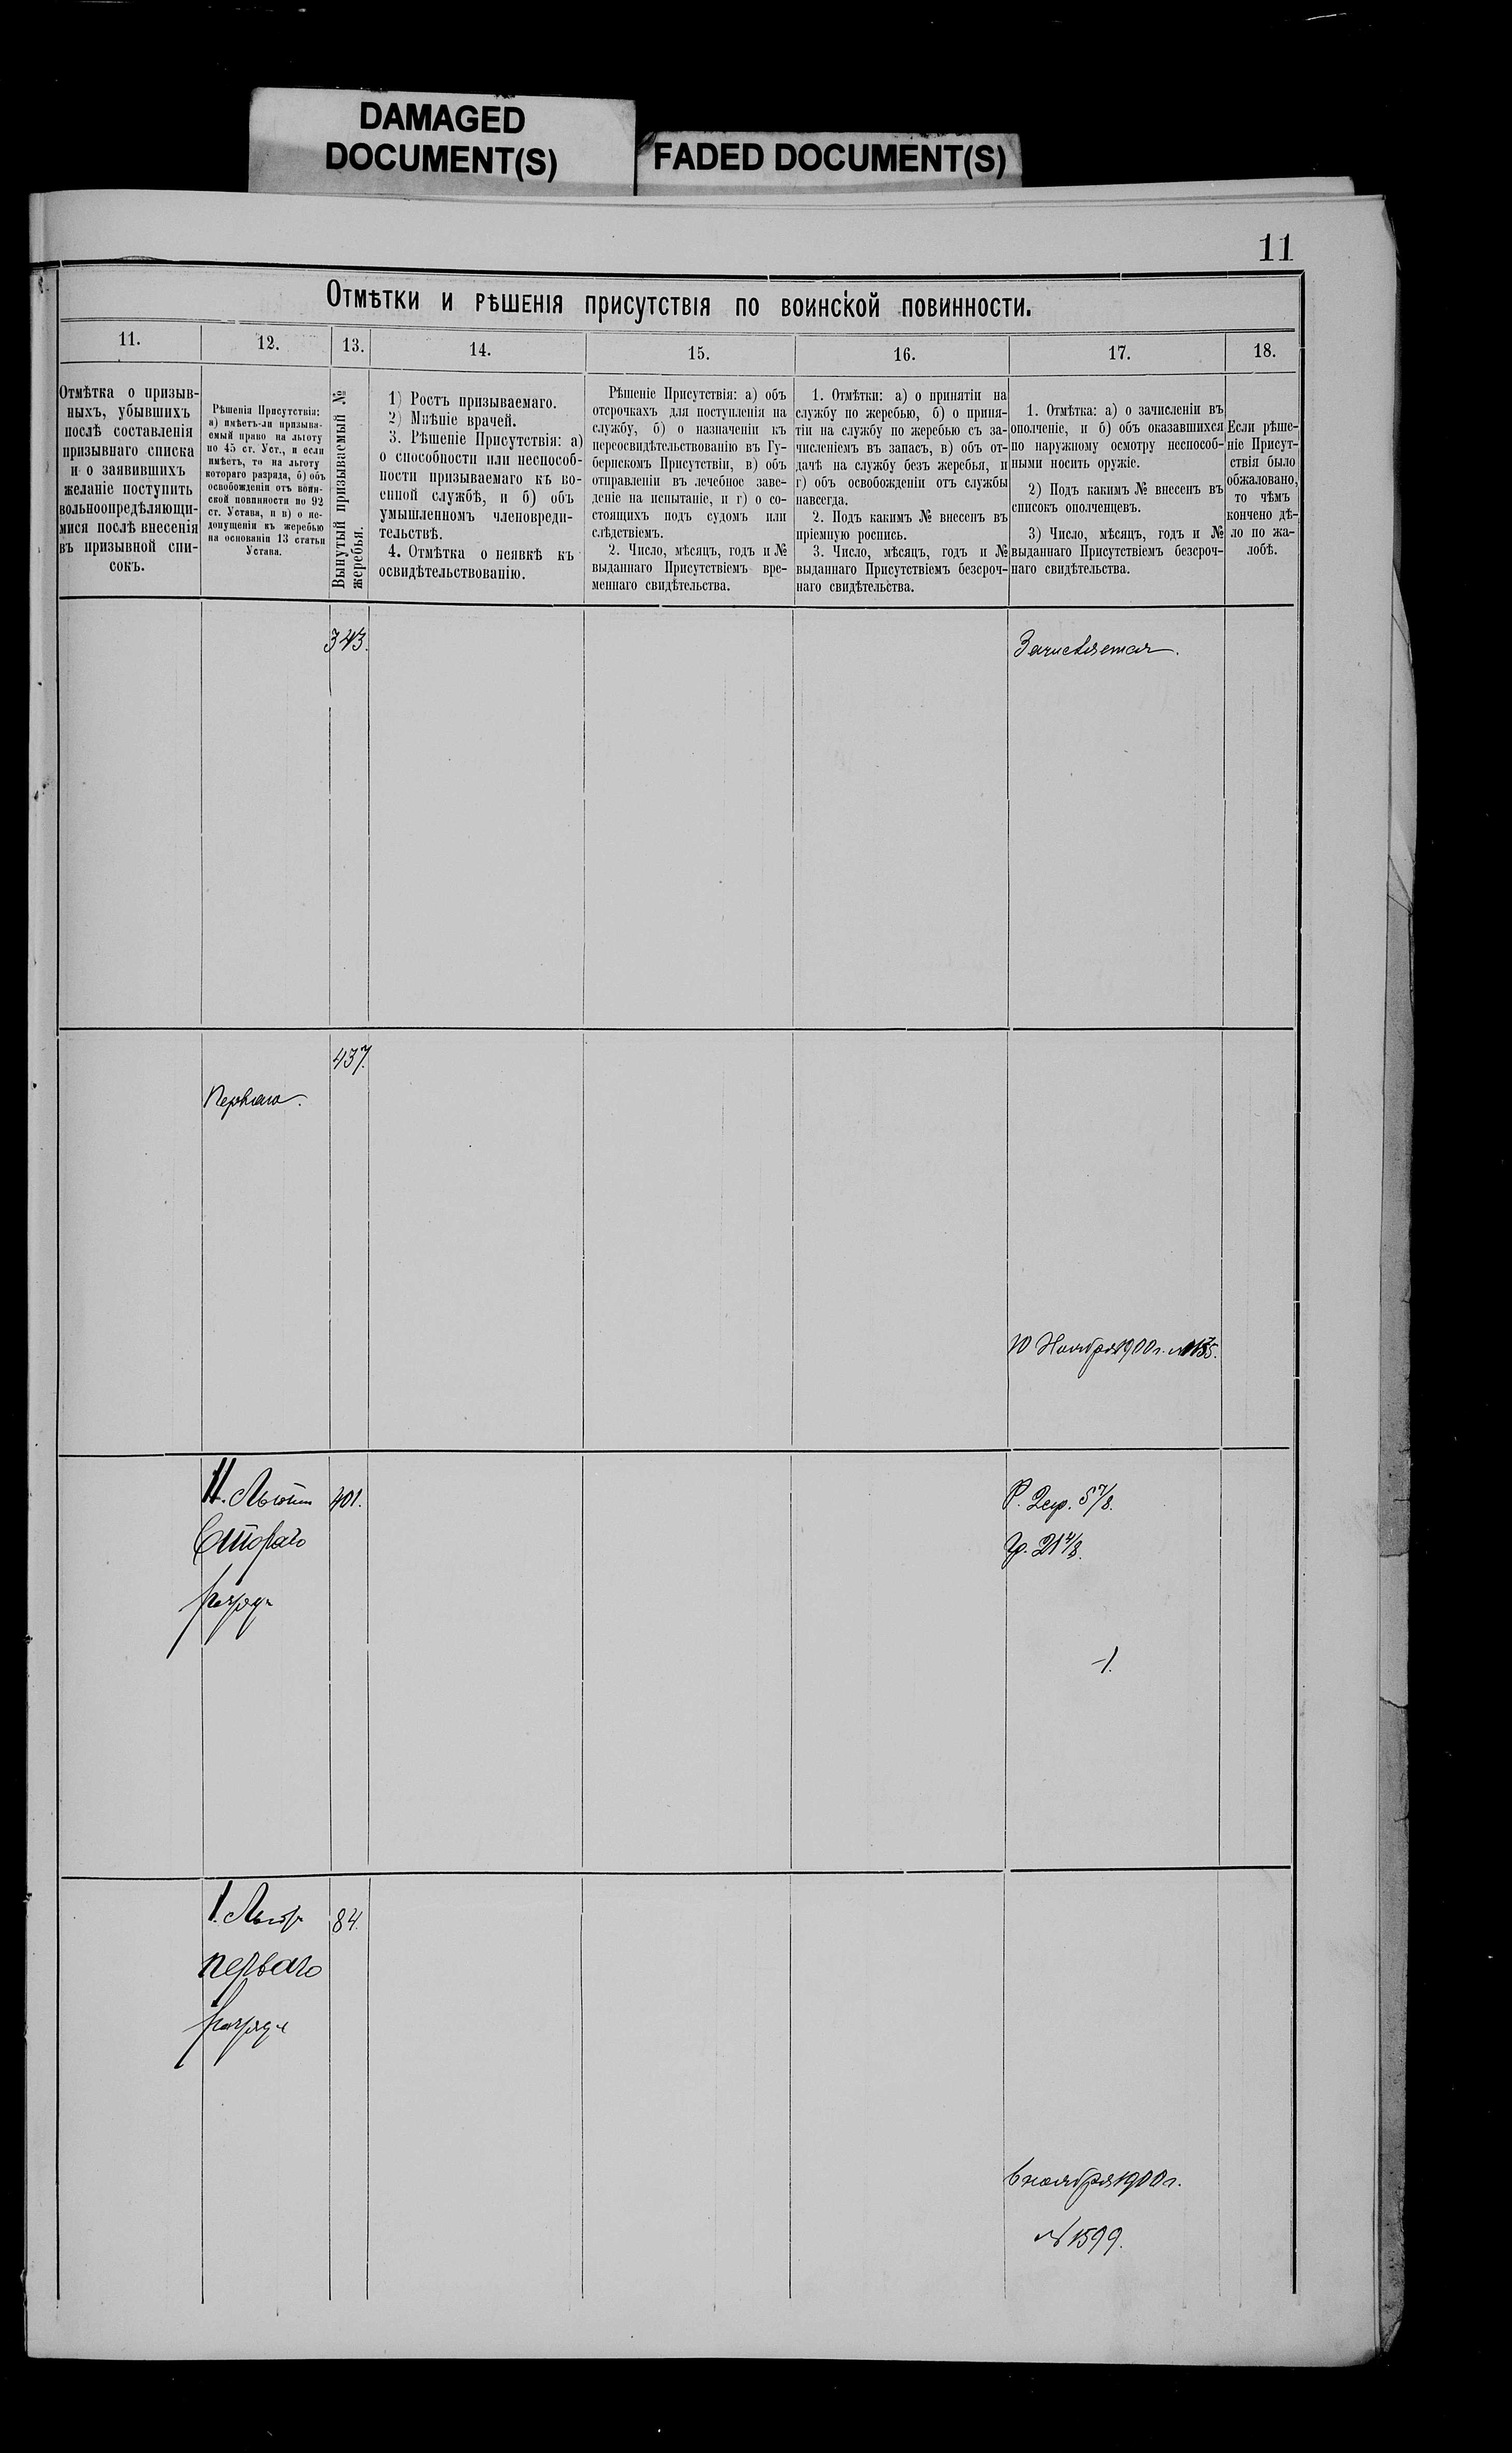 DAMAGED
DOCUMENT(S)
FADED DOCUMENT(S)
11
Отмѣтки и рѣшенія присутствія по воинской повинности.
11.
12.
13.
14.
15.
16.
17.
18.
Отмѣтка о призыв-
ныхъ, убывшихъ
послѣ составленія
призывнаго списка
и о заявившихъ
желаніе поступить
вольноопредѣляющи-
мися послѣ внесенія
въ призывной спи-
сокъ.
Рѣшенія Присутствія:
а) имѣетъ-ли призыва-
емый право на льготу
по 45 ст. Уст., и если
имѣетъ, то на льготу
котораго разряда, б) объ
освобожденіи отъ воин-
ской повинности по 92
ст. Устава, и в) о не-
допущеніи къ жеребью
на основаніи 13 статьи
Устава.
Вынутый призываемый №
жеребья.
1) Ростъ призываемаго.
2) Мнѣніе врачей.
3. Рѣшеніе Присутствія: а)
о способности или неспособ-
ности призываемаго къ во-
енной службѣ, и б) объ
умышленномъ членовреди-
тельствѣ.
4. Отмѣтка о неявкѣ къ
освидѣтельствованію.
Рѣшеніе Присутствія: а) объ
отсрочкахъ для поступленія на
службу, б) о назначеніи къ
переосвидѣтельствованію въ Гу-
бернскомъ Присутствіи, в) объ
отправленіи въ лечебное заве-
деніе на испытаніе, и г) о со-
стоящихъ подъ судомъ или
слѣдствіемъ.
2. Число, мѣсяцъ, годъ и №
выданнаго Присутствіемъ вре-
меннаго свидѣтельства.
1. Отмѣтки: а) о принятіи на
службу по жеребью, б) о приня-
тіи на службу по жеребью съ за-
численіемъ въ запасъ, в) объ от-
дачѣ на службу безъ жеребья, и
г) объ освобожденіи отъ службы
навсегда.
2. Подъ какимъ № внесенъ въ
пріемную роспись.
3. Число, мѣсяцъ, годъ и №
выданнаго Присутствіемъ безсроч-
наго свидѣтельства.
1. Отмѣтка: а) о зачисленіи въ
ополченіе, и б) объ оказавшихся
по наружному осмотру неспособ-
ными носить оружіе.
2) Подъ какимъ № внесенъ въ
списокъ ополченцевъ.
3) Число, мѣсяцъ, годъ и №
выданнаго Присутствіемъ безсроч-
наго свидѣтельства.
Если рѣше-
ніе Присут-
ствія было
обжаловано,
то чѣмъ
кончено дѣ-
ло по жа-
лобѣ.
343.
Зачисляется.
437.
Перваго.
10 Ноября 1900 г.
II. Льготн
401.
Р. 2ар. 5 7/8.
Втораго
Гр. 21 4/8.
разряда
1.
I. Льгот
84.
перваго
разряда
6 ноября 1900 г.
№ 1599.